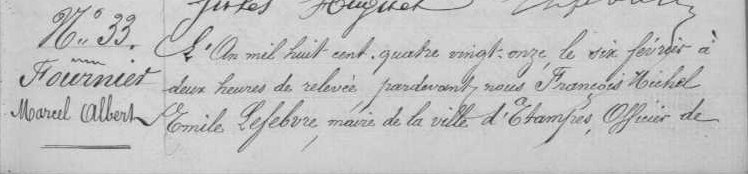 N° 33.
Fournier
Marcel Albert
L'An mil huit cent quatre vingt-onze, le six février à
deux heures de relevée, pardevant nous François Michel
Emile Lefebvre, maire de la ville d'Etampes, Officier de